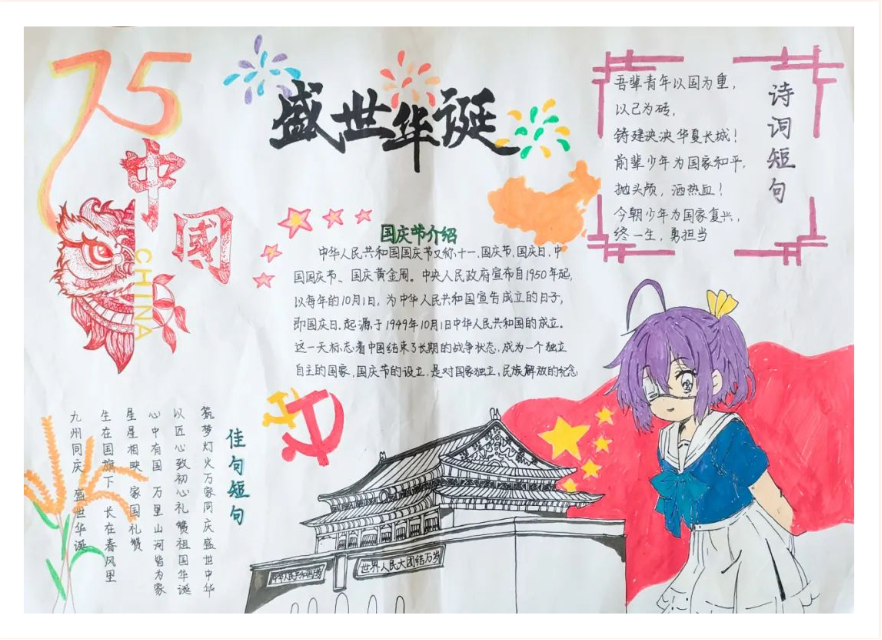 75
中國
CHINA
盛世华诞
诗词短句
吾辈青年以国为重，
以己为砖，
铸建泱泱华夏长城！
前辈少年为国家和平，
抛头颅，洒热血！
今朝少年为国家复兴，
终一生，勇担当
国庆节介绍
中华人民共和国国庆节又称十一、国庆节、国庆日、中
国国庆节、国庆黄金周。中央人民政府宣布自1950年起，
以每年的10月1日，为中华人民共和国宣告成立的日子，
即国庆日。起源于1949年10月1日中华人民共和国的成立。
这一天标志着中国结束了长期的战争状态，成为一个独立
自主的国家，国庆节的设立，是对国家独立，民族解放的纪念
佳句短句
筑梦灯火万家同庆盛世中华
以匠心致初心礼赞祖国华诞
心中有国 万里山河皆为家
星星相映 家国礼赞
生在国旗下 长在春风里
九州同庆 盛世华诞
世界人民大团结万岁